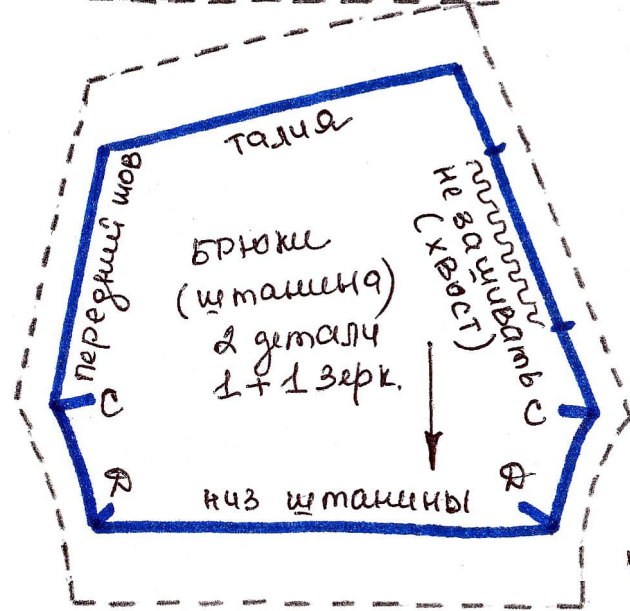 талия
передний шов
не зашивать
(хвост)
брюки
(штанина)
2 детали
1 + 1 зерк.
С
С
Д
Д
низ штанины